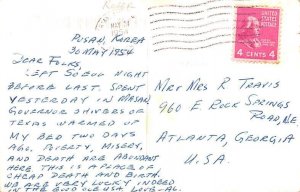 PUSAN, KOREA
30 MAY 1954
DEAR FOLKS,
LEFT SEOUL NIGHT
BEFORE LAST. SPENT
YESTERDAY IN
GOVERNOR SHIVERS OF
TEXAS WARMED
MY BED TWO DAYS
AGO. POVERTY, MISERY,
AND DEATH ARE ABUNDANT
HERE THIS IS A PLACE OF
CHEAP DEATH AND BIRTH.
WE ARE VERY LUCKY, INDEED
IN THE
UNITED STATES
POSTAGE
4 CENTS 4
MR & MRS R TRAVIS
960 E ROCK SPRINGS
ROAD, NE
ATLANTA, GEORGIA
U.S.A.